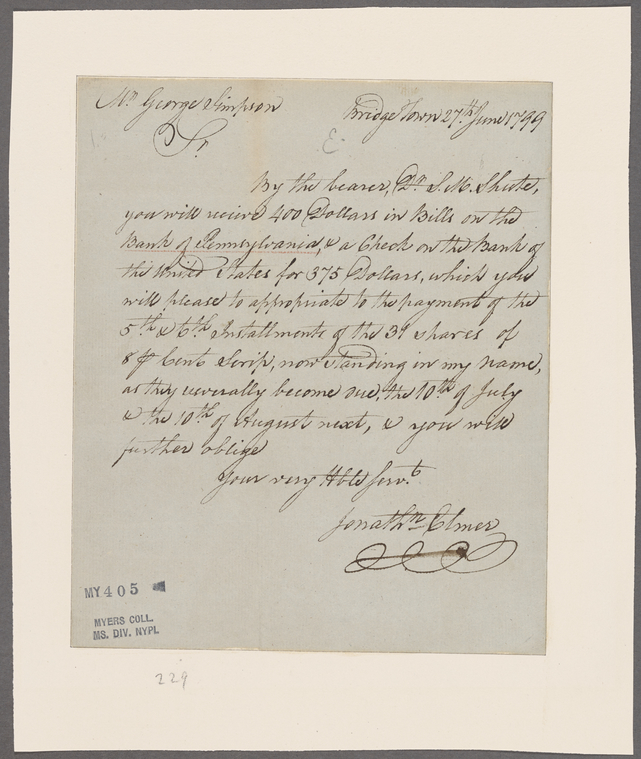 Mr. George Simpson
Bridge Town 27th. June 1799
Sr.
By the bearer, Dr. S. M. Shute,
you will receive 400 Dollars in Bills on the
Bank of Pennsylvania, & a Check on the Bank of
the United States for 375 Dollars, which you
will please to appropriate to the payment of the
5th & 6th Installments of the 31 shares of
8 Cent Scrip, now standing in my name,
as they severally become due, the 10th of July
& the 10th of August next, & you will
further oblige
Your very Hble Serv.t
Jonathn. Elmer
MY405
MYERS COLL.
MS. DIV. NYPL
229